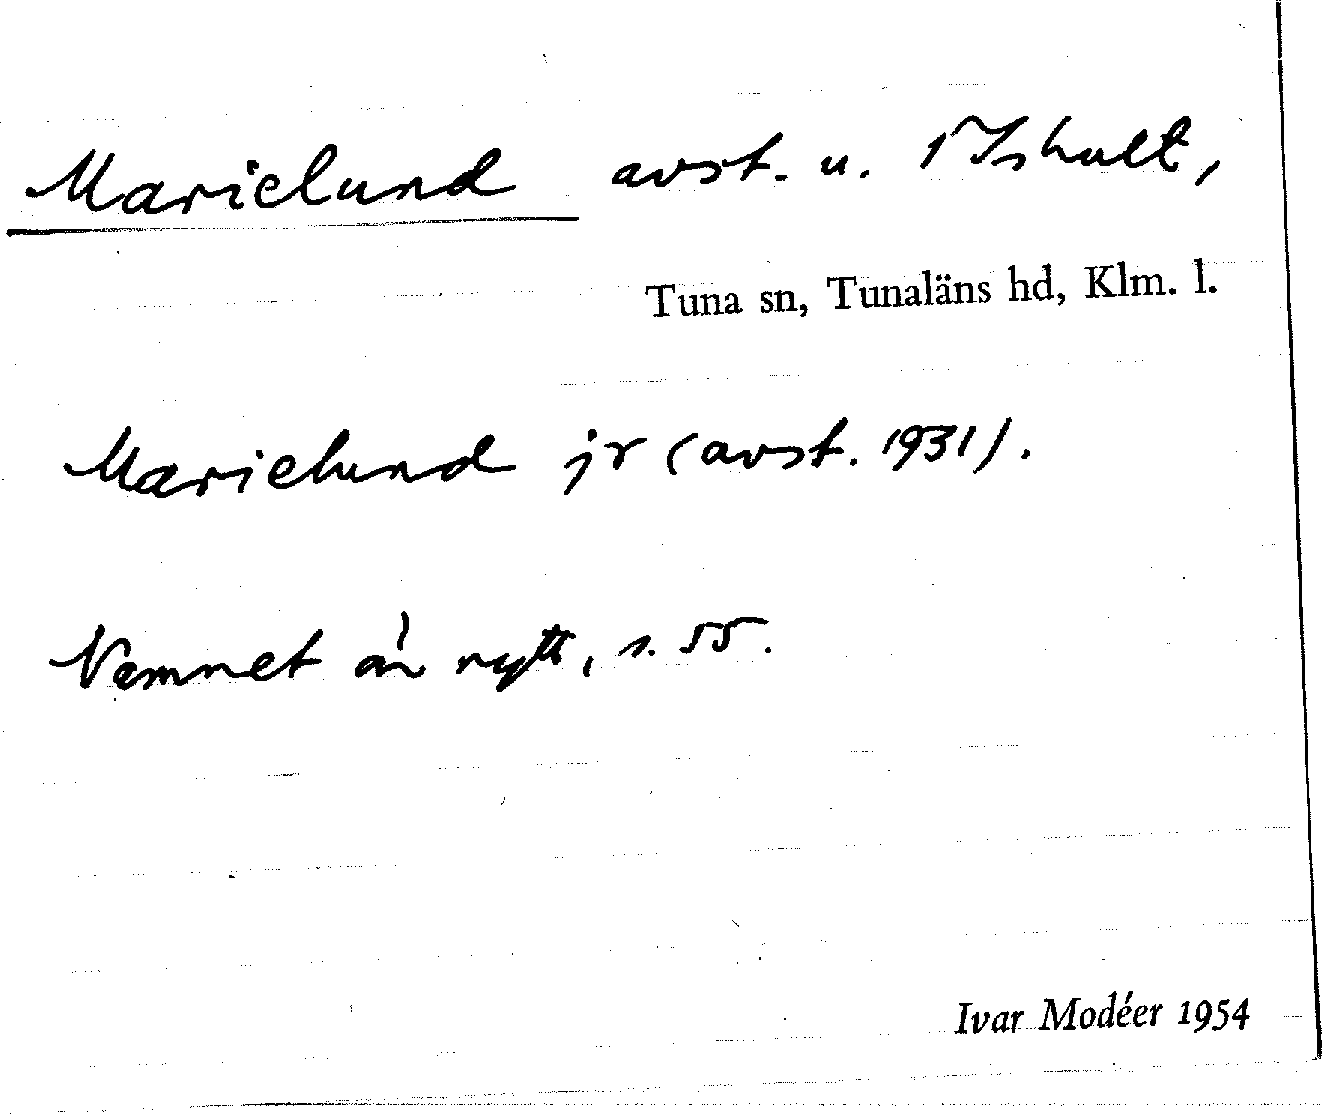 Marielund avst. u. 1 Ishult,
Tuna sn, Tunaläns hd, Klm. l.
Marielund jr (avst. 1931).
Namnet är nytt, s. 55.
Ivar Modéer 1954